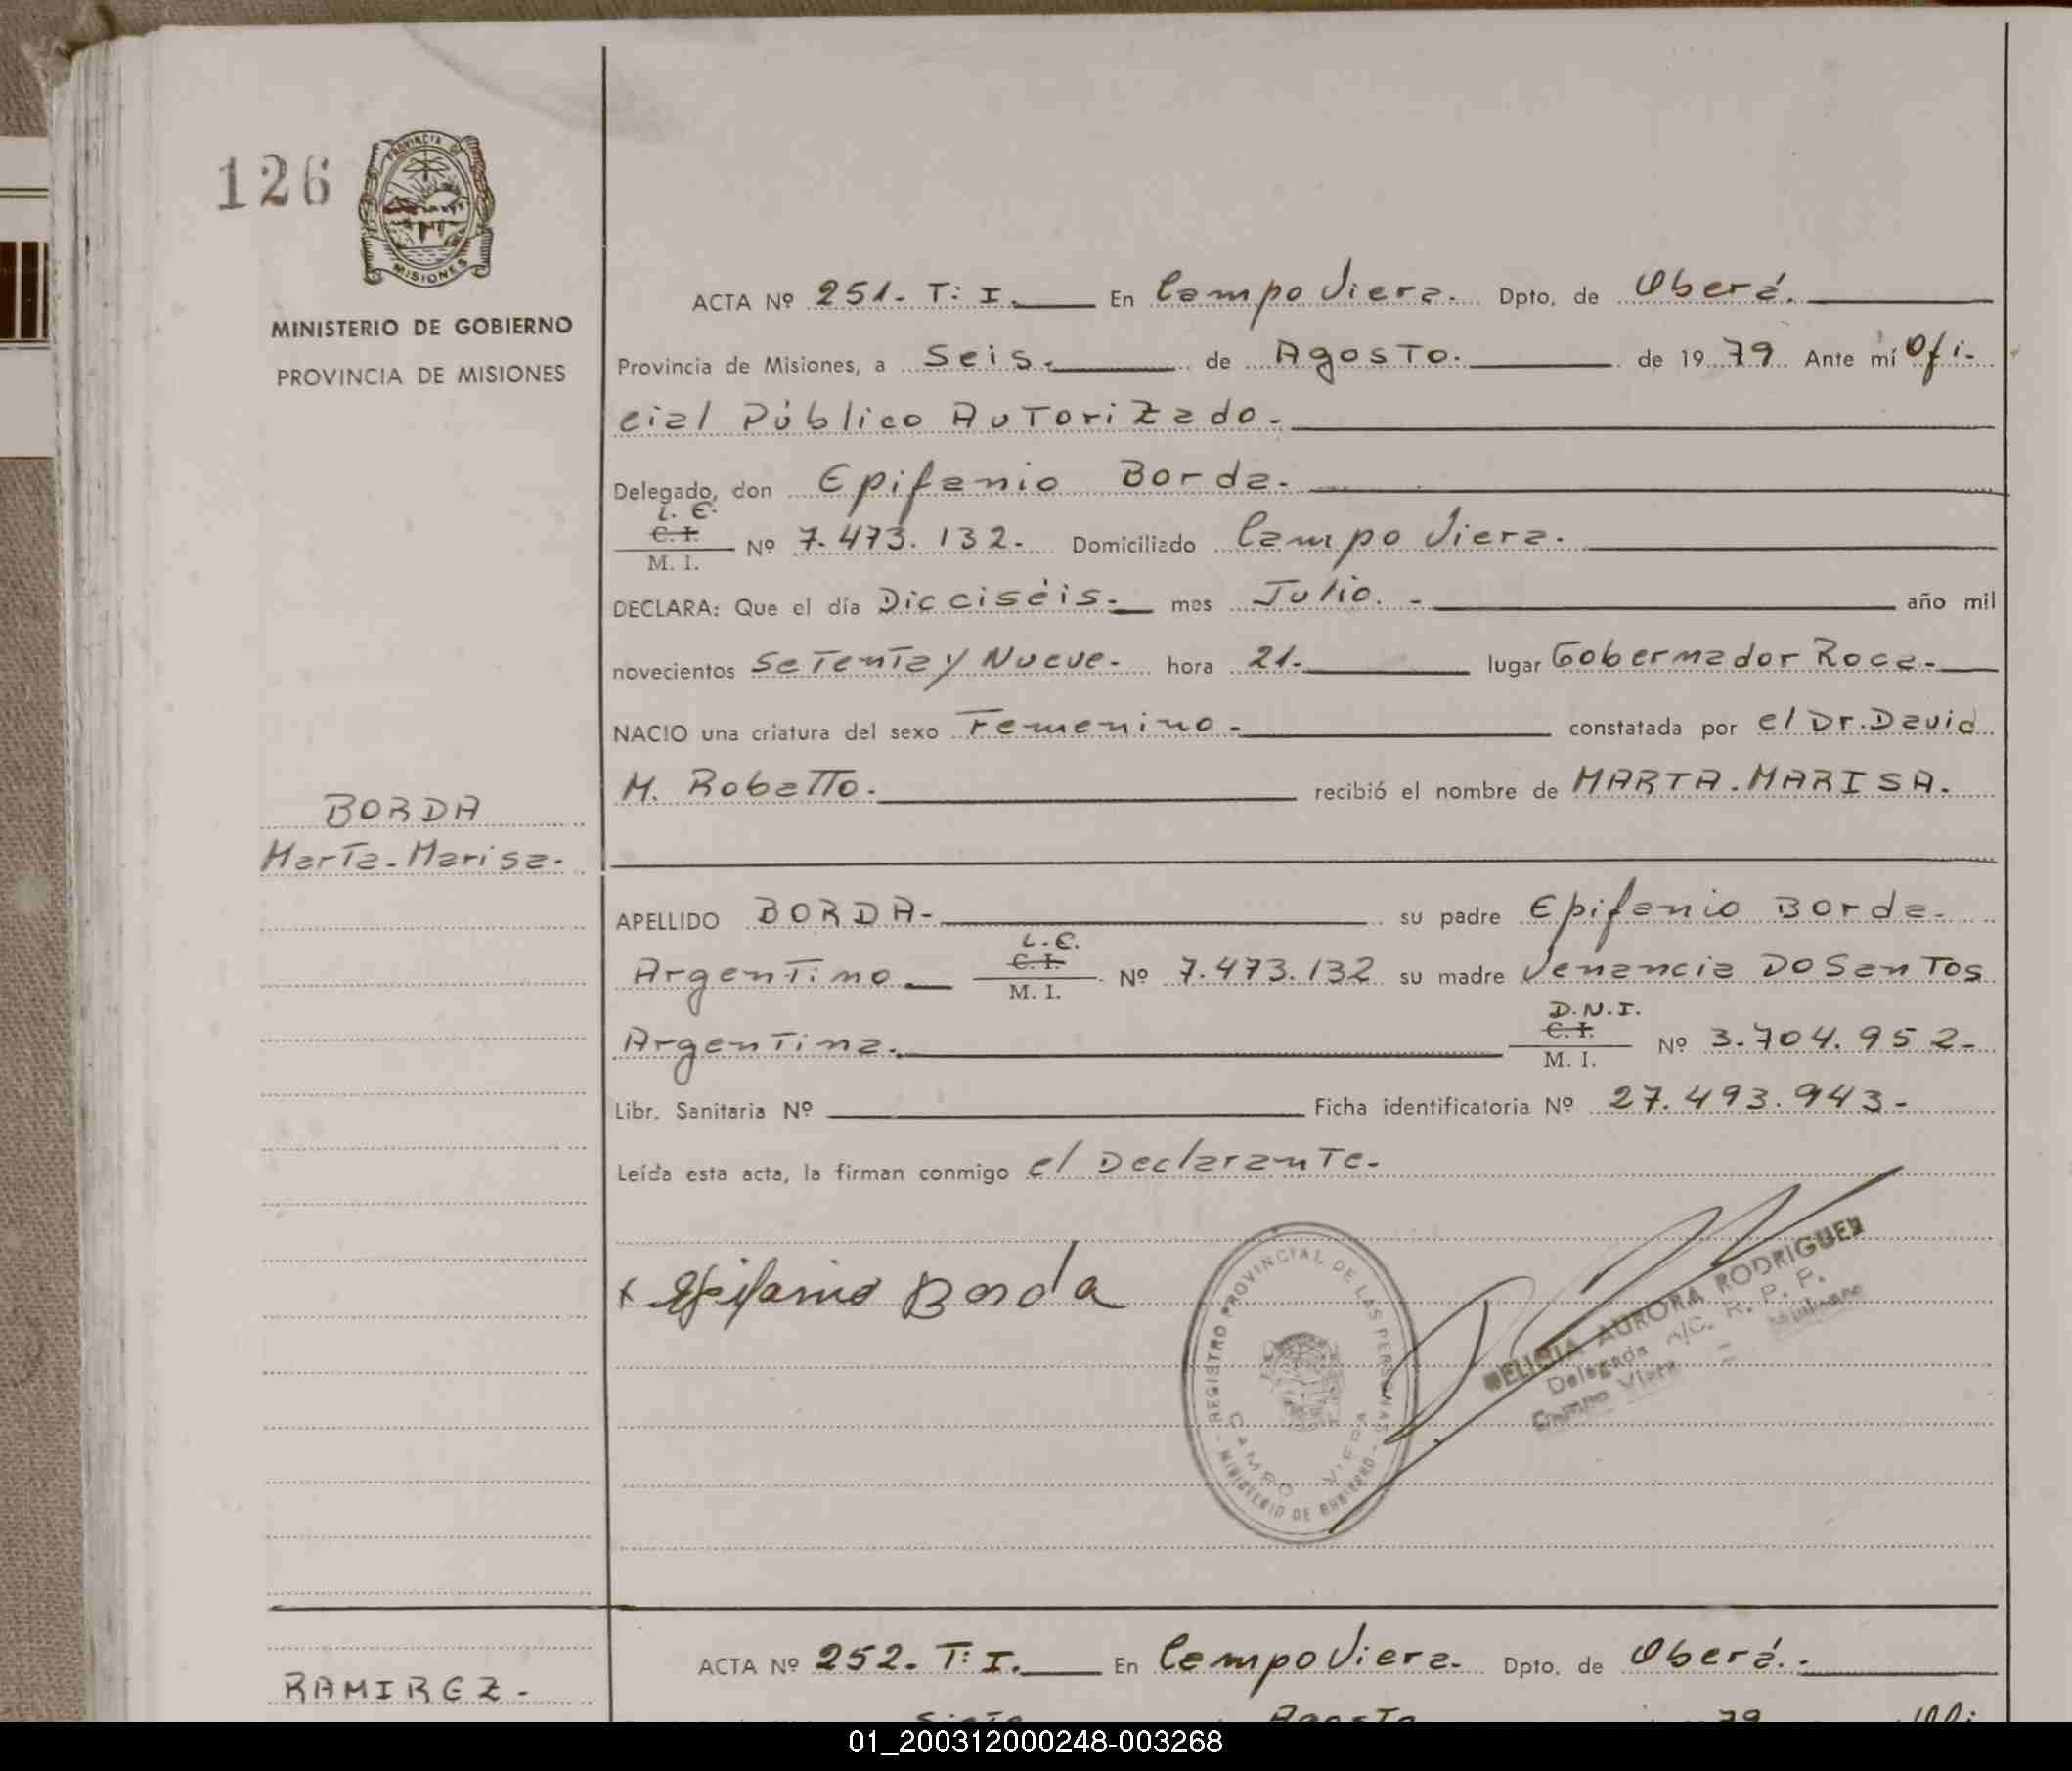 126
PROVINCIA DE
MISIONES
MINISTERIO DE GOBIERNO
PROVINCIA DE MISIONES
ACTA Nº 251- T: I. En Campo Viera. Dpto, de Oberá.
Provincia de Misiones, a Seis. de Agosto. de 1979 Ante mí Ofi-
cial Público Autorizado.
Delegado, don Epifanio Borda.
L. E.
C. I.
M. I. Nº 7.473.132. Domiciliado Campo Viera.
DECLARA: Que el día Dieciséis. mes Julio. - año mil
novecientos Setenta y Nueve. hora 21. lugar Gobernador Roca.
NACIO una criatura del sexo Femenino. constatada por el Dr. David
M. Robatto. recibió el nombre de MARTA. MARISA.
BORDA
Marta-Marisa.
APELLIDO BORDA- su padre Epifanio Borda.
L.E.
Argentino C. I. Nº 7.473.132 su madre Venancia Do Santos
M. I.
D.N.I.
Argentina. C. I. Nº 3.704.952-
M. I.
Libr. Sanitaria Nº Ficha identificatoria Nº 27.493.943-
Leída esta acta, la firman conmigo el Declarante.
x Epifanio Borda
REGISTRO PROVINCIAL DE LAS PERSONAS
CAMPO VIERA
- MINISTERIO DE GOBIERNO -
AURORA RODRIGUEZ
Delegada A/C. R. P. P.
Campo Viera - Misiones
ACTA Nº 252. T: I. En Campo Viera. Dpto. de Oberá.
RAMIREZ-
Siete Agosto 79 Ofi
01_200312000248-003268